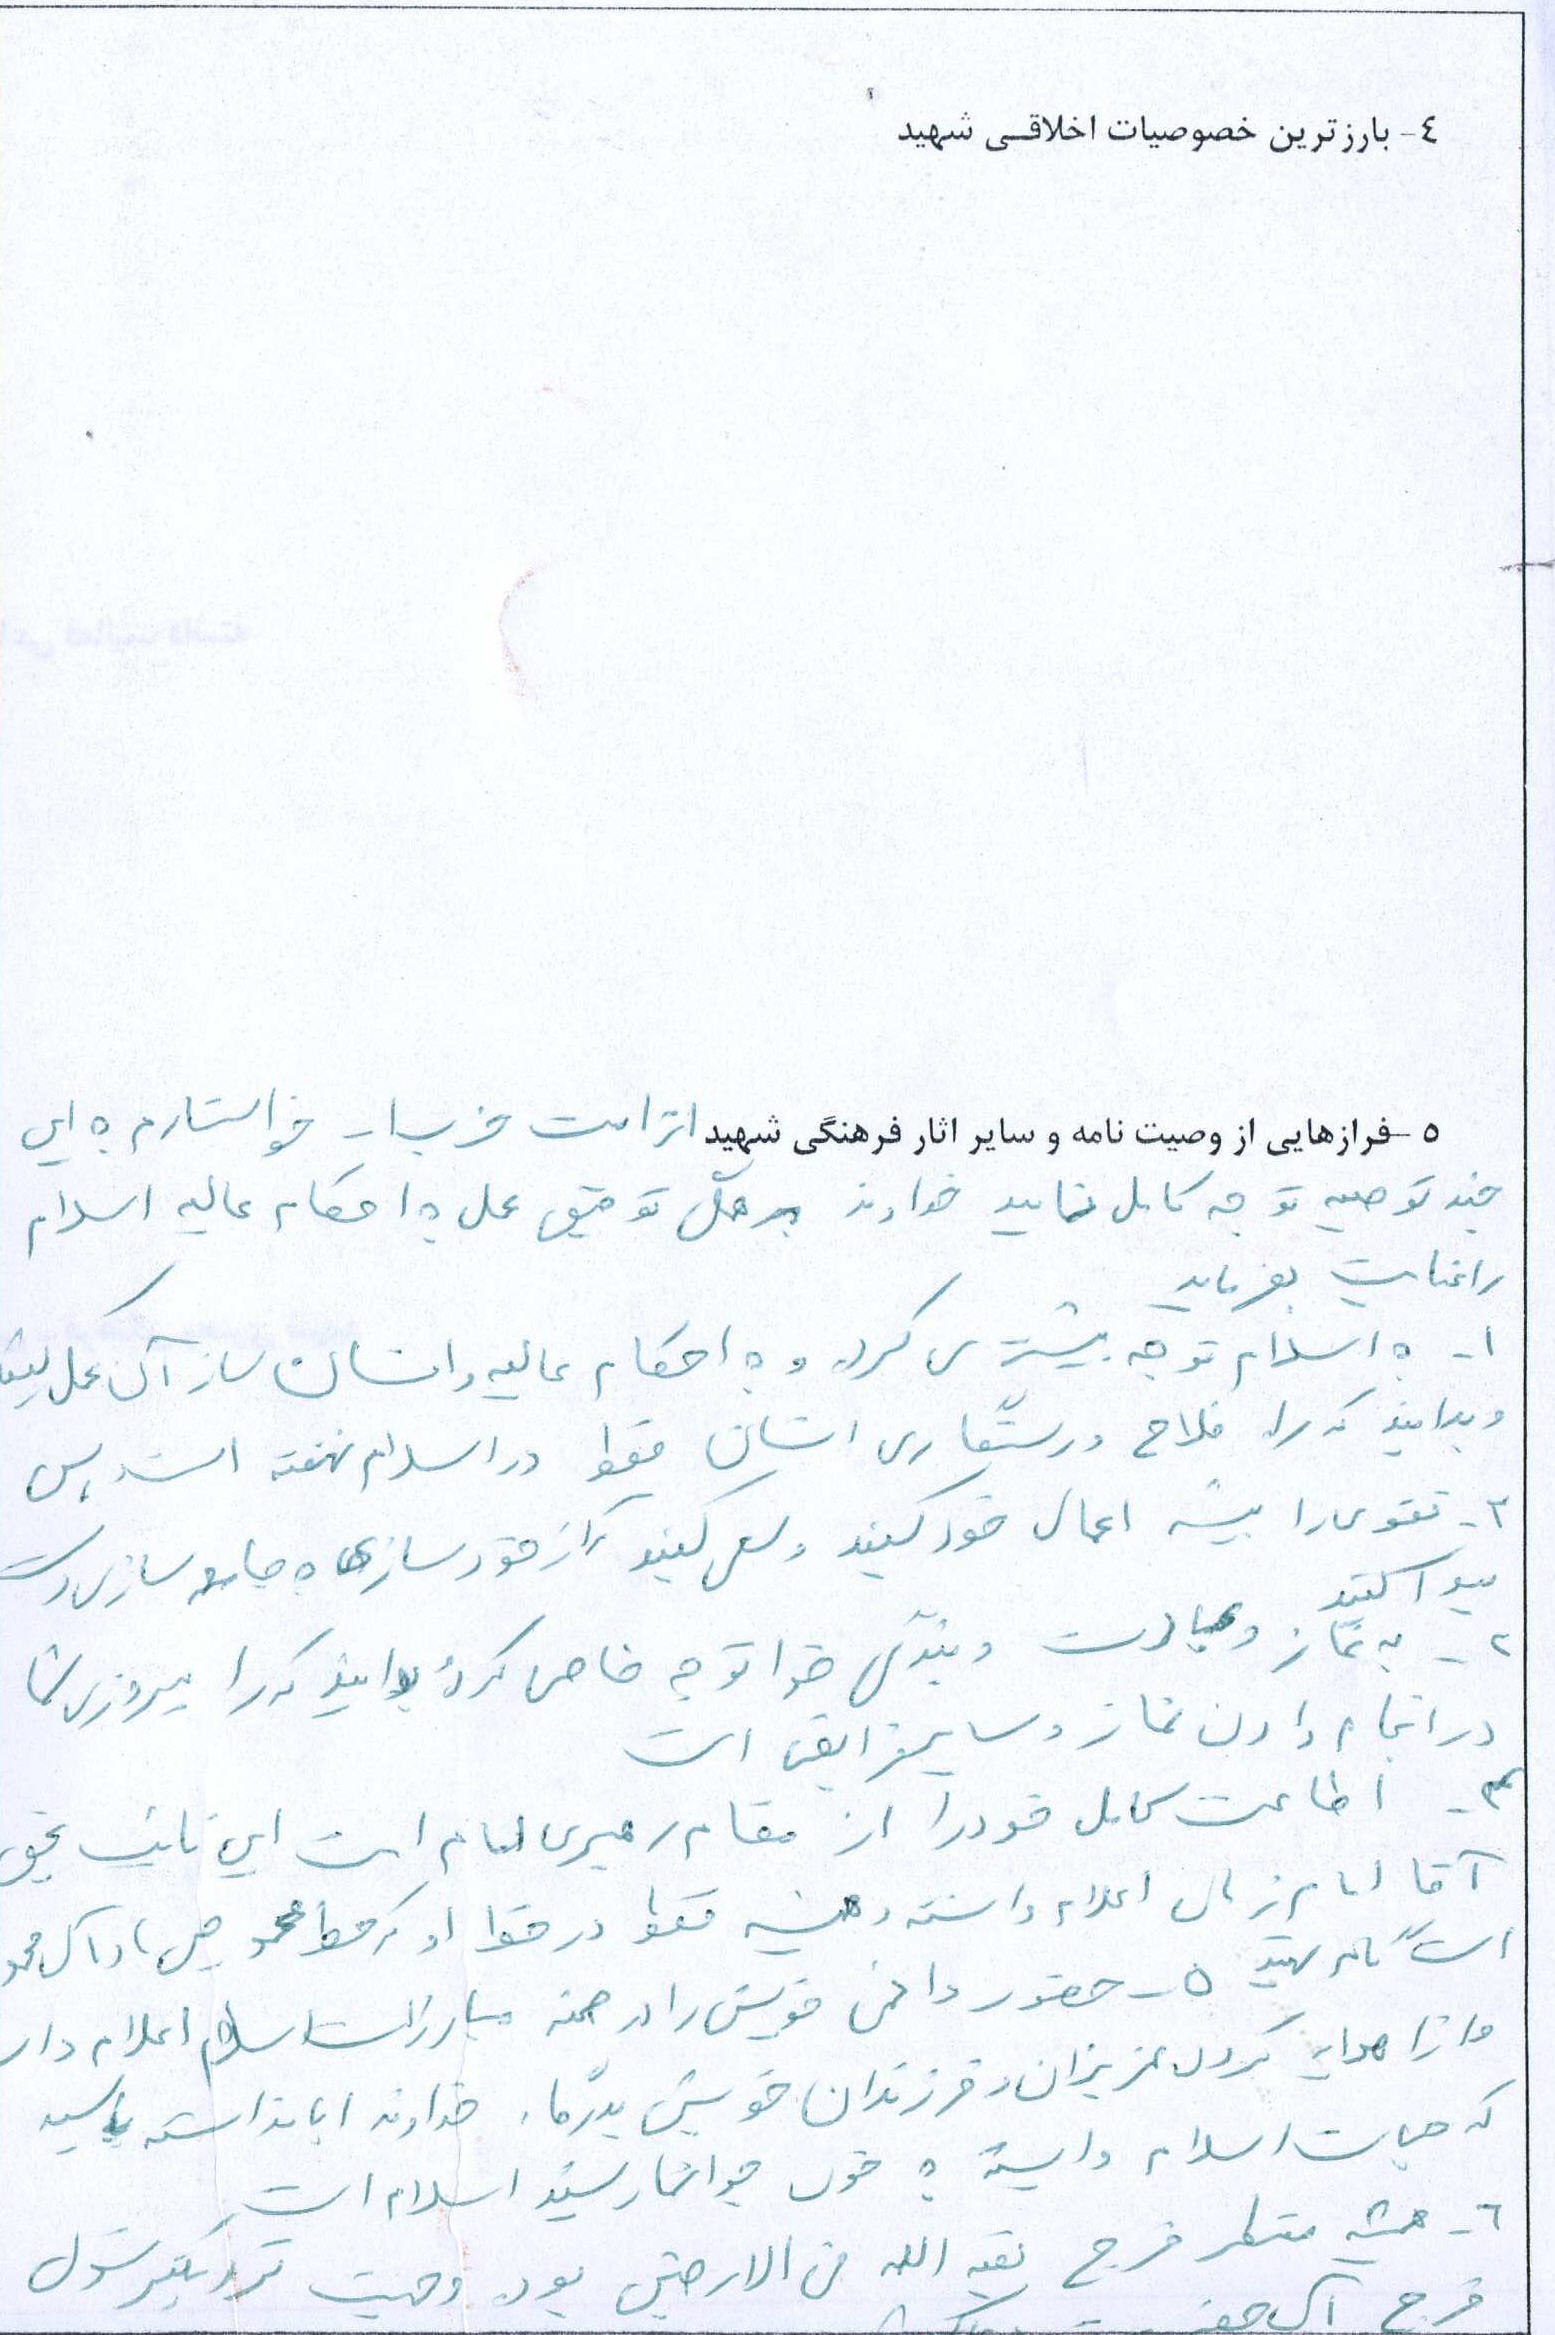 ٤- بارزترین خصوصیات اخلاقی شهید
٥- فرازهایی از وصیت نامه و سایر اثار فرهنگی شهید از امت حزب ا... خواستارم به این
چند توصیه توجه کامل نمایید خداوند توفیق عمل به احکام عالیه اسلام
را عنایت بفرماید
۱- به اسلام توجه بیشتری کرده و به احکام عالیه و انسان ساز آن عمل کنید
و بدانید که راه فلاح و رستگاری انسان فقط در اسلام نهفته است پس
۳- تقوی را پیشه اعمال خود کنید و سعی کنید که از خودسازی به جامعه سازی دست
پیدا کنید
۲- به نماز و عبادت و بندگی خدا توجه خاص کرده بدانید که راه پیروزی شما
در انجام دادن نماز و سایر فرایض است
۴- اطاعت کامل خود را از مقام رهبری امام امت این نائب بحق
آقا امام زمان اعلام داشته و همیشه فقط در خط او که خط محمد (ص) و آل محمد
است گام نهید ۵- حضور دائمی خویش را در صحنه مبارزات اسلام اعلام دارید
و از اهدای کردن عزیزان و فرزندان خویش بدرگاه خداوند ابا نداشته باشید
که حیات اسلام وابسته به خون جوانمار رشید اسلام است
٦- همیشه منتظر فرج بقیه الله فی الارضین بوده و جهت نزدیکتر شدن
فرج آن حضرت